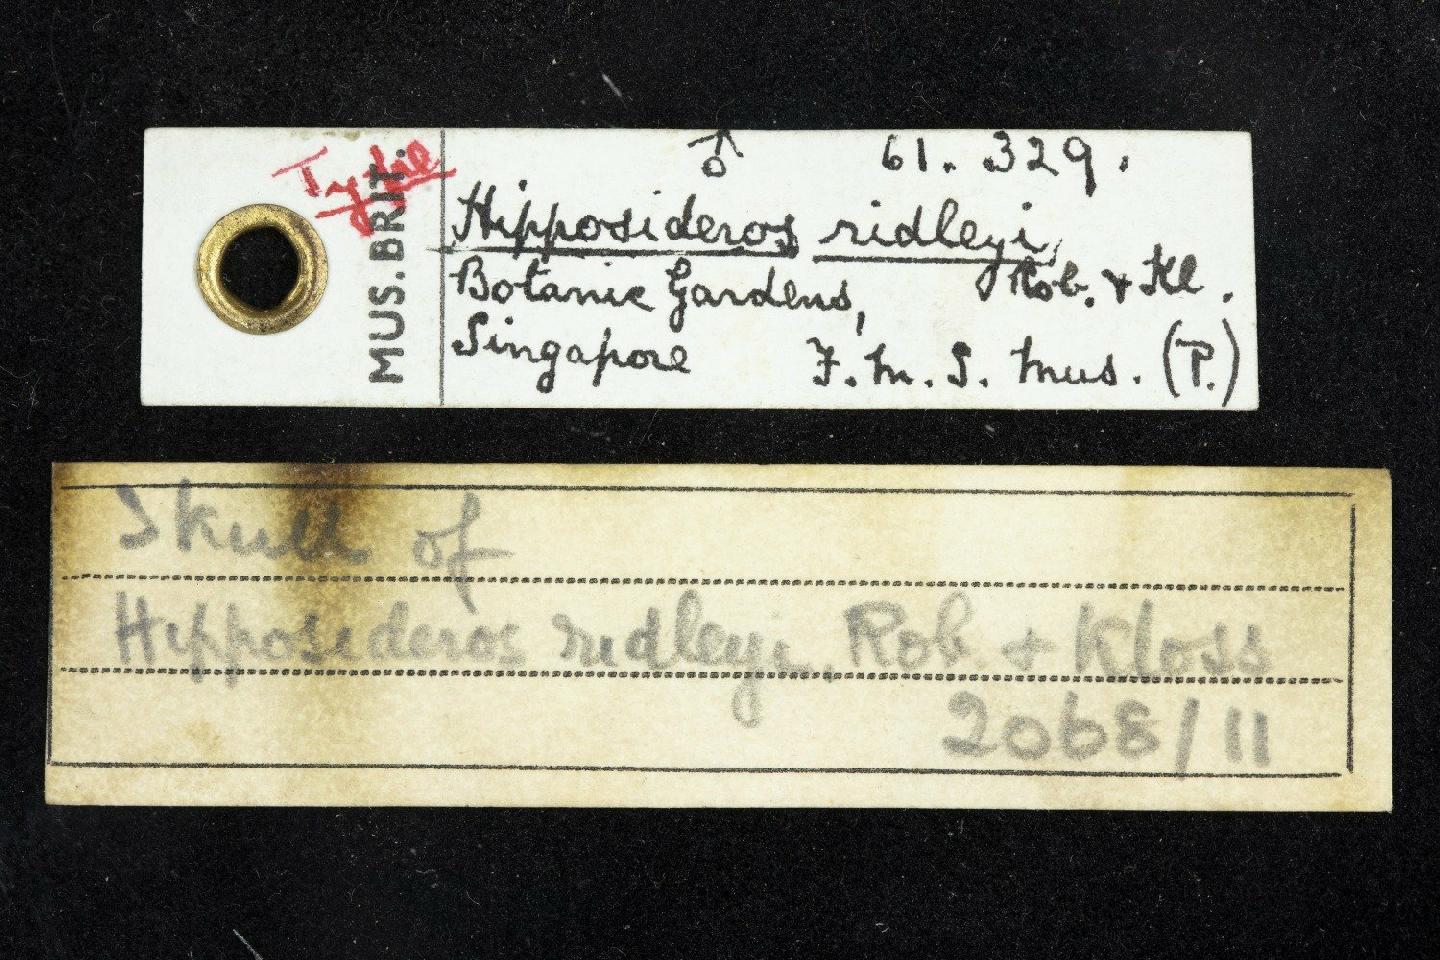 Type
MUS.BRIT.
♂ 61. 329.
Hipposideros ridleyi,
Rob. & Kl.
Botanic Gardens,
Singapore F. M. S. Mus. (P.)
Skull of
Hipposideros ridleyi, Rob + Kloss
2068/11